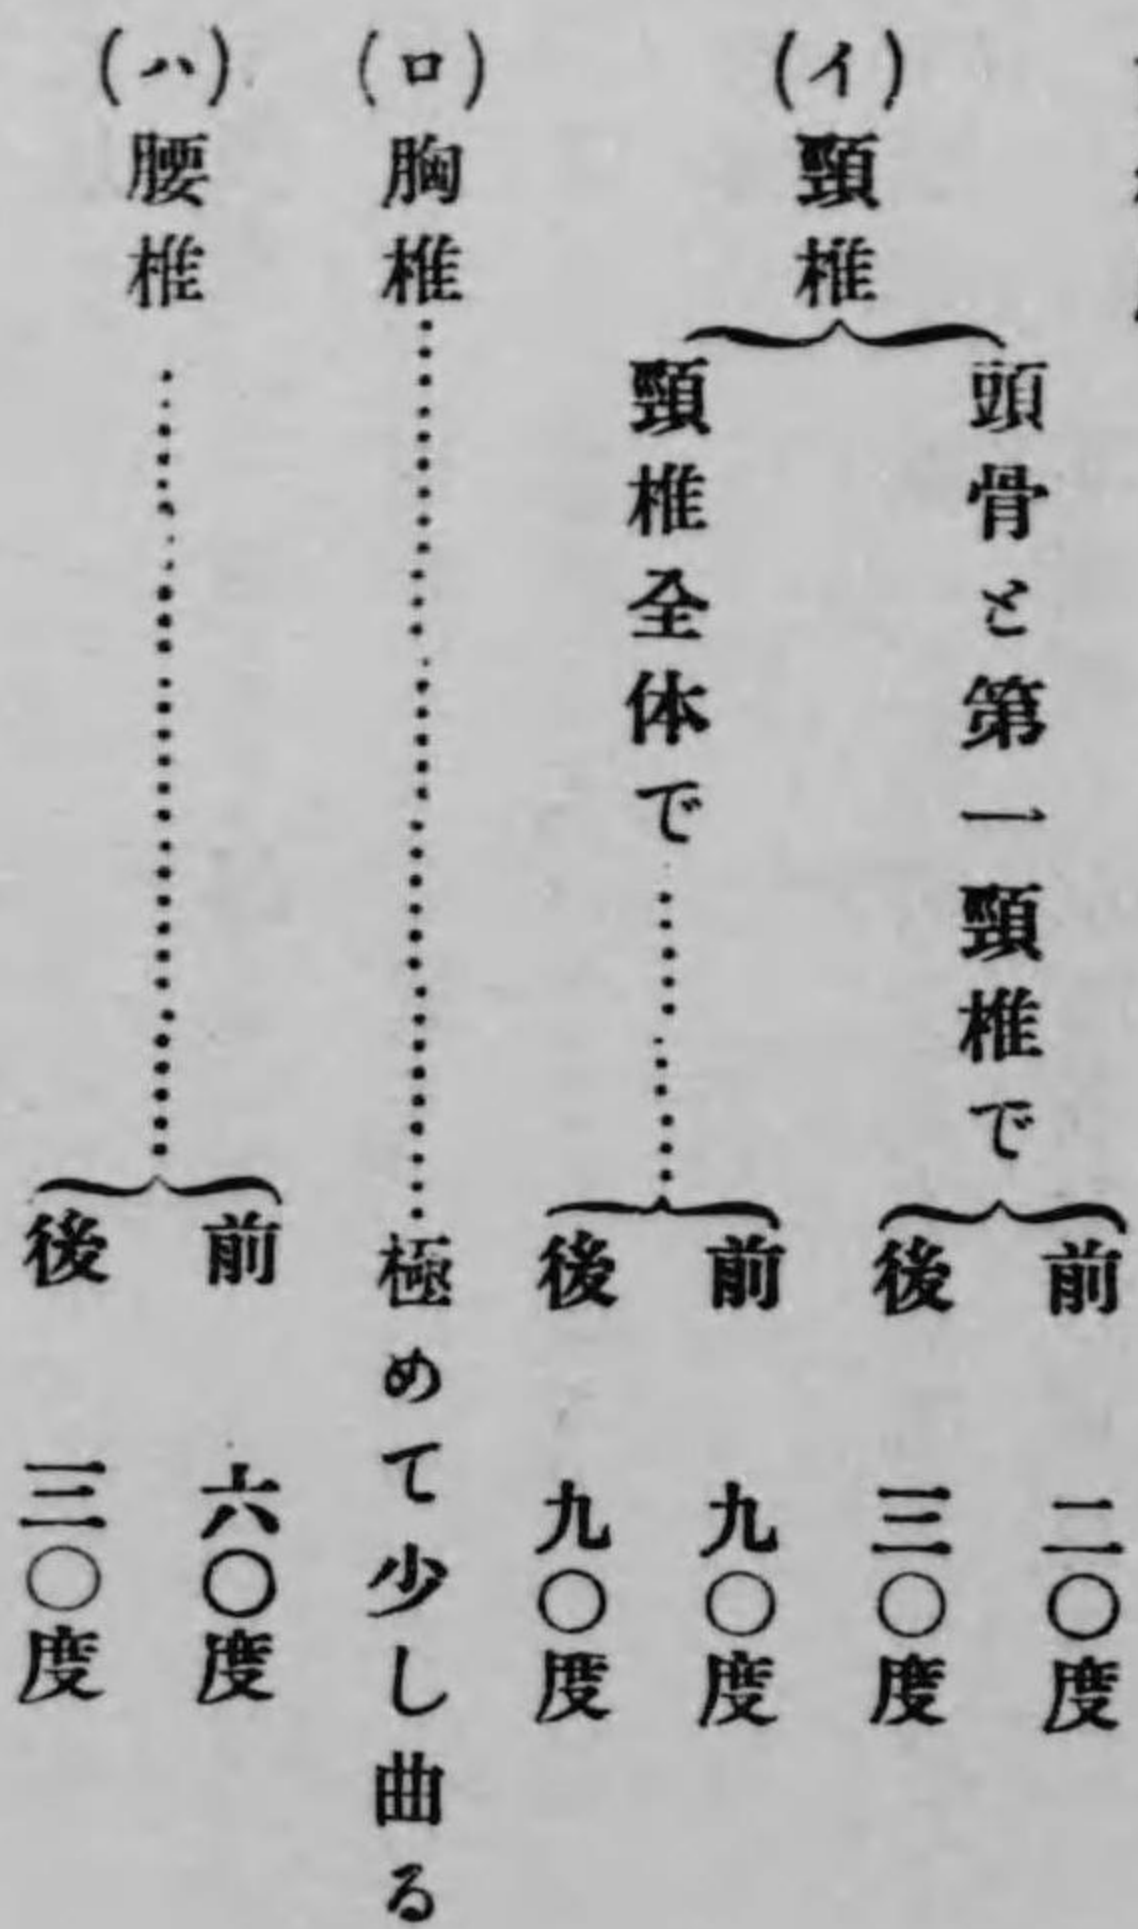 (イ)頸椎
頭骨と第一頸椎で
前 二〇度
後 三〇度
頸椎全体で
前 九〇度
後 九〇度
(ロ)胸椎……極めて少し曲る
(ハ)腰椎……
前 六〇度
後 三〇度